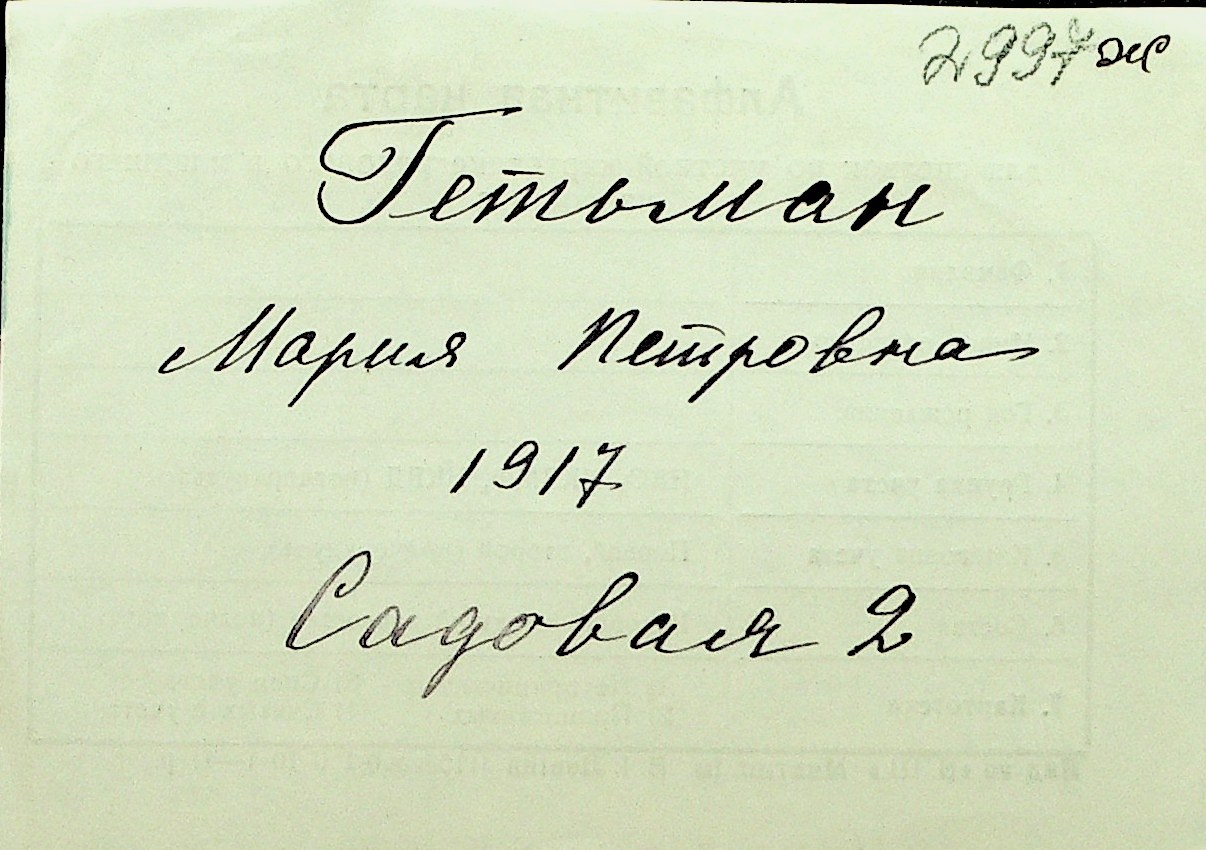 2997ж
Гетьман
Мария Петровна
1917
Садовая 2